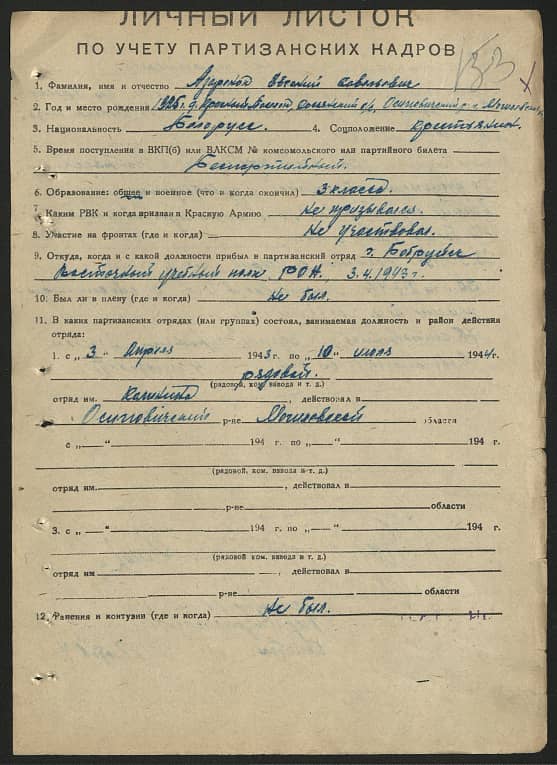 ЛИЧНЫЙ ЛИСТОК
ПО УЧЕТУ ПАРТИЗАНСКИХ КАДРОВ
1. Фамилия, имя и отчество Савельевич
2. Год и место рождения 1925 г. д. Красный Осиповичский р-н Могилевской
3. Национальность Белорусс. 4. Соцположение крестьянин.
5. Время поступления в ВКП(б) или ВЛКСМ № комсомольского или партийного билета
Беспартийный.
6. Образование: общее и военное (что и когда окончил) 3 класса.
7. Каким РВК и когда призван в Красную Армию Не призывался.
8. Участие на фронтах (где и когда) Не участвовал.
9. Откуда, когда и с какой должности прибыл в партизанский отряд г. Бобруйск
Восточный учебный полк РОА, 3.4.1943 г.
10. Был ли в плену (где и когда) Не был.
11. В каких партизанских отрядах (или группах) состоял, занимаемая должность и район действия
отряда:
1. с „ 3 “ Апреля 1943 г. по „ 10 “ июля 1944 г.
рядовой.
(рядовой, ком. взвода и т. д.)
отряд им. Калинина , действовал в
Осиповичский р-не Могилевской области
с „ — “ 194 г. по „ — “ 194 г.
(рядовой, ком. взвода и т. д.)
отряд им. , действовал в
р-не области
3. с „ — “ 194 г. по „ — “ 194 г.
(рядовой, ком. взвода и т. д.)
отряд им , действовал в
р-не области
12. Ранения и контузии (где и когда) Не был.